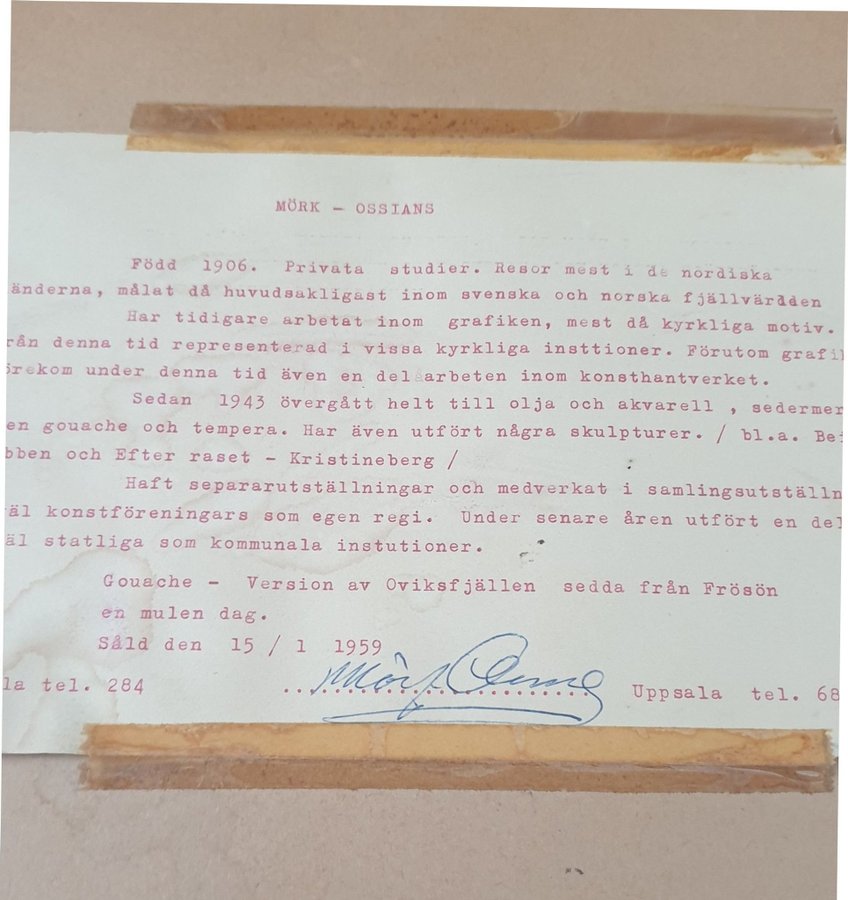 MÖRK - OSSIANS
Född 1906. Privata studier. Resor mest i de nordiska
änderna, målat då huvudsakligast inom svenska och norska fjällvärdden
Har tidigare arbetat inom grafiken, mest då kyrkliga motiv.
rån denna tid representerad i vissa kyrkliga insttioner. Förutom grafi
örekom under denna tid även en del arbeten inom konsthantverket.
Sedan 1943 övergått helt till olja och akvarell , sedermer
en gouache och tempera. Har även utfört några skulpturer. / bl.a. Be
bben och Efter raset - Kristineberg /
Haft separarutställningar och medverkat i samlingsutställn
äl konstföreningars som egen regi. Under senare åren utfört en del
äl statliga som kommunala instutioner.
Gouache - Version av Oviksfjällen sedda från Frösön
en mulen dag.
Såld den 15 / 1 1959
la tel. 284 Mörk Uppsala tel. 68